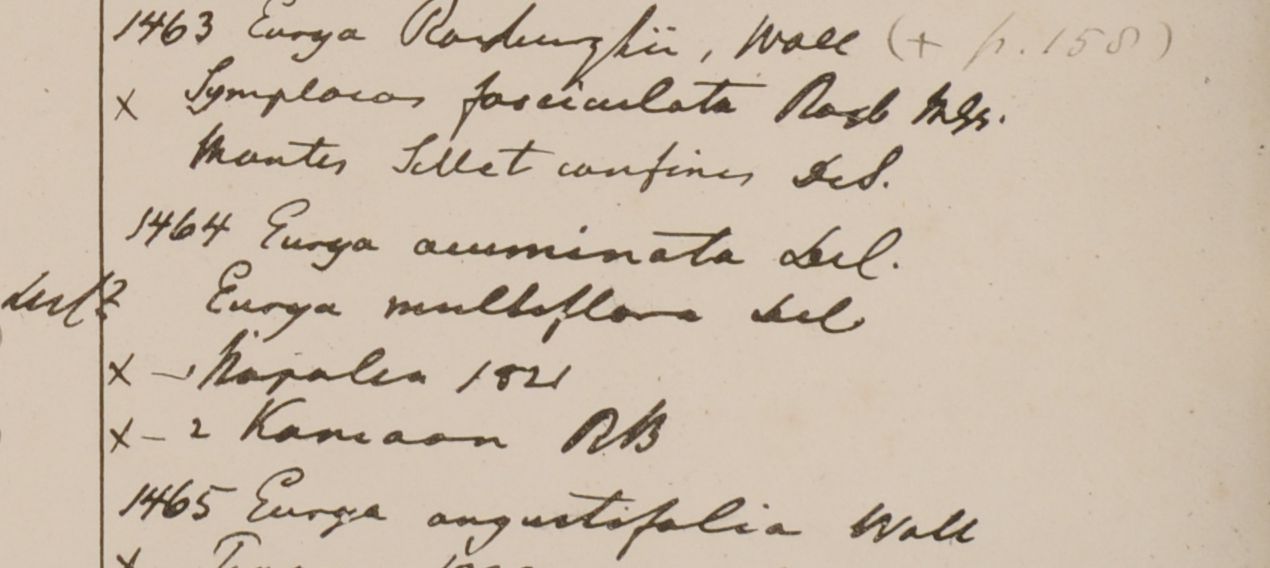 1463 Eurya Roxburghii, Wall (+ p. 158)
x Symplocos fasciculata Roxb Mss.
Montes Sillet confines DeS.
1464 Eurya acuminata Del.
Eurya multiflora Del
x - 1 Napalia 1821
x - 2 Kamaon RB
1465 Eurya angustifolia Wall
x